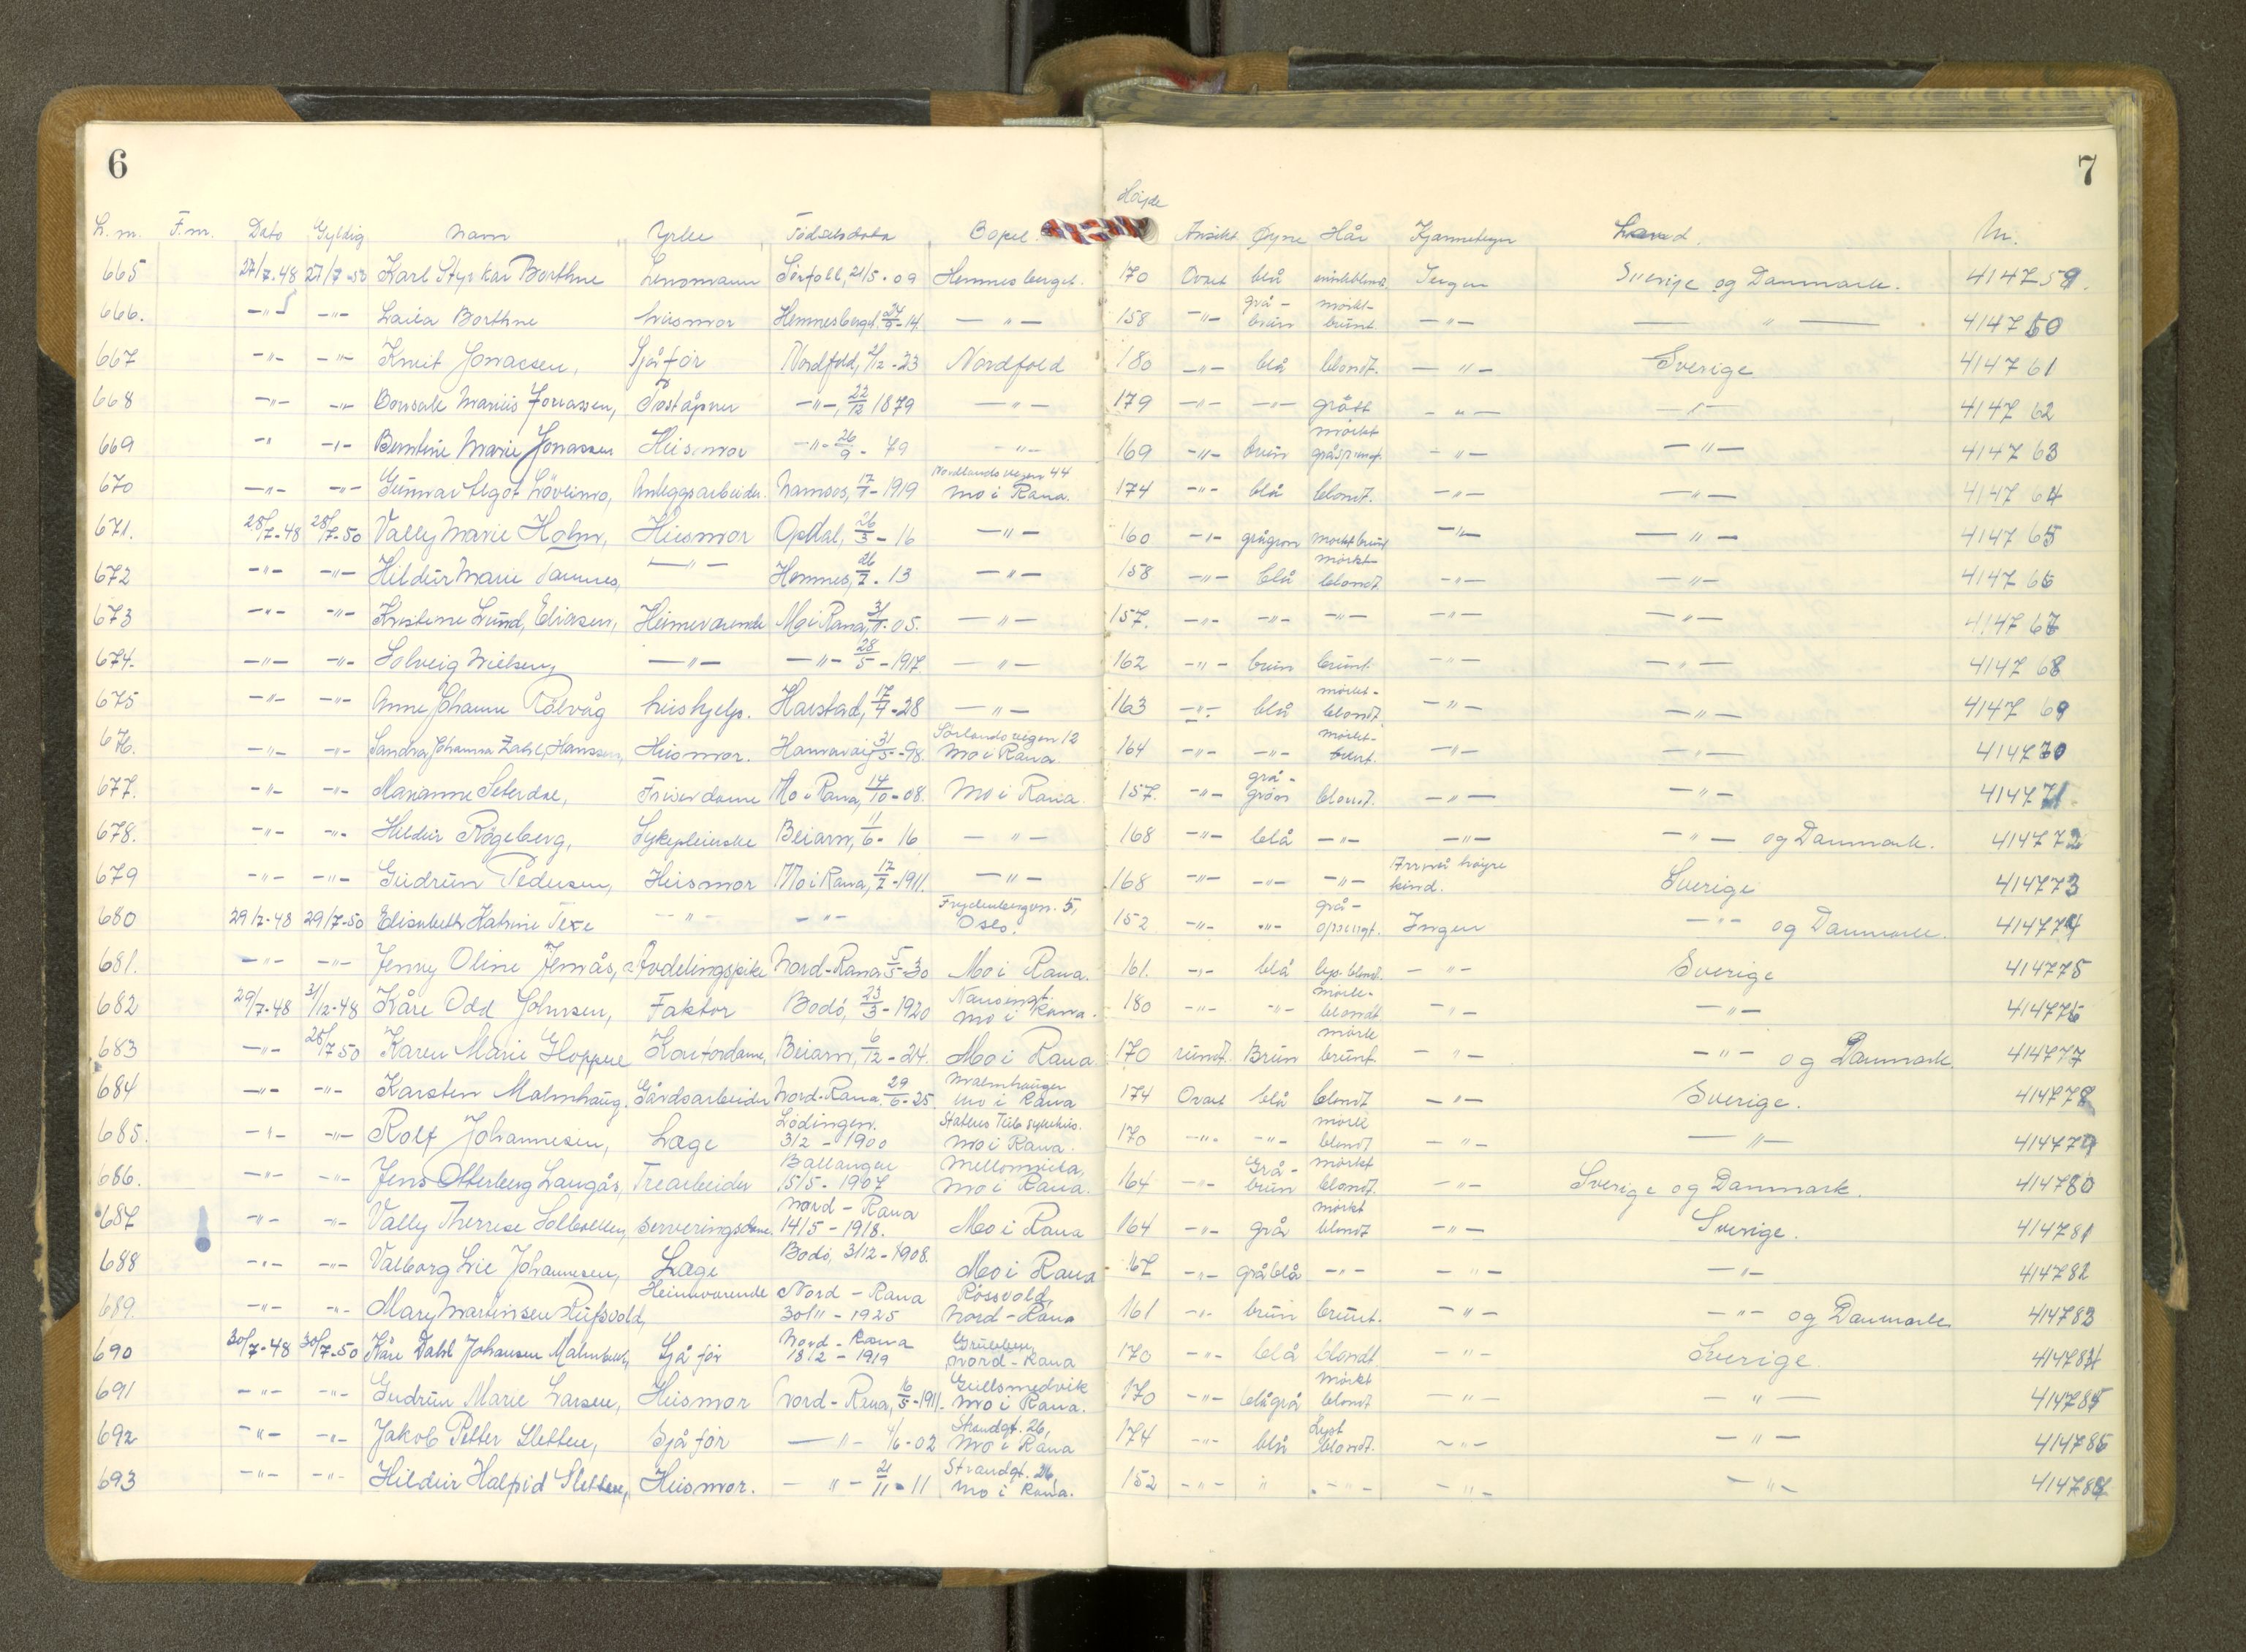 6
7
L.nr. F.nr. Dato Gyldig Navn Yrke Födselsdata Bopel. Höyde Ansikt Öyne Hår Kjennetegn Land. Nr.
665 27/7-48 27/7-50 Karl Styrkar Borthne Lensmann Sörfold, 21/5-09 Hemnesberget. 170 Ovalt blå Ingen Sverige og Danmark. 414759.
666. -"- -"- Laila Borthne husmor Hemnesberget -14. -"- 158 -"- grå-brun mörkt-brunt -"- -"- 414760
667 -"- -"- Knut Jonassen, Sjåför Nordfold, 2/12-23 Nordfold 180 -"- blå blondt. -"- Sverige 414761
668 -"- -"- Marius Jonassen, Poståpner -"-, 22/12 1879 -"- 179 -"- -"- grått -"- -"- 414762
669 -"- -"- Berntine Marie Jonassen Husmor -"- 26/9-79 -"- 169 -"- brun mörkt -"- -"- 414763
670 -"- -"- Gunnar Lövlimo, Anleggsarbeider. Namsos, 17/1-1919 Nordlandsvegen 44 Mo i Rana. 174 -"- blå blondt. -"- -"- 414764
671. 28/7-48 28/7-50 Vally Marie Holm, Husmor Opdal, 26/3-16 -"- 160 -"- grågrön mörktbrunt -"- -"- 414765
672 -"- -"- Hildur Marie -"- Hemnes, 26/7-13 -"- 158 -"- blå mörkt-blondt -"- -"- 414766
673 -"- -"- Kristine Lund, Eliasen, Heimeværende Mo i Rana, -05. -"- 157. -"- -"- -"- -"- -"- 414767
674. -"- -"- Solveig Nilsen, -"- -"- 28/5-1917. -"- 162 -"- brun brunt. -"- -"- 414768
675 -"- -"- Anne Johanne Rölvåg hushjelp. Harstad, 17/4-28 -"- 163 -"- blå mörkt-blondt. -"- -"- 414769
676. -"- -"- Sandra Johanna Hanssen, Husmor. 31/5-98. Sörlandsvegen 12 Mo i Rana 164 -"- -"- mörkt-brunt. -"- -"- 414770
677. -"- -"- Marianne Seterdal, Friserdame Mo i Rana, 14/10-08. Mo i Rana. 157. -"- grå-grön blondt. -"- -"- 414771
678. -"- -"- Hildur Rögeberg, Sykepleierske Beiarn, 11/6-16 -"- 168 -"- blå -"- -"- -"- og Danmark. 414772
679 -"- -"- Gudrun Pedersen, Husmor Mo i Rana, 12/2-1911. -"- 168 -"- -"- -"- Arr på höyre kind. Sverige 414773
680 29/7-48 29/7-50 Elisabeth Katrine -"- -"- 5, Oslo. 152 -"- -"- grå-sprengt. Ingen -"- og Danmark. 414774
681. -"- -"- Jenny Oline Jemås, Avdelingspike Nord-Rana 5/5-30 Mo i Rana. 161. -"- blå lys blond. -"- Sverige 414775
682 29/7-48 31/12-48 Kåre Odd Johnsen, Faktor Bodö, 23/3-1920 Nansengt. Mo i Rana. 180 -"- -"- mörk-blondt -"- -"- 414776
683 -"- 28/7 50 Karen Marie Hoppe Kontordame, Beiarn, 6/12-24. Mo i Rana 170 rundt. Brun mörk brunt. -"- -"- og Danmark. 414777
684 -"- -"- Karsten Malmhaug. Gårdsarbeider Nord-Rana. 29/6-25 Malmhaugen Mo i Rana 174 Ovalt blå blondt -"- Sverige. 414778
685. -"- -"- Rolf Johannesen, Læge Lödingen. 3/2-1900 Mo i Rana. 170 -"- -"- mörk blondt -"- -"- 414779
686. -"- -"- Jens Otterberg Langås, Trearbeider Ballangen 15/5-1907 Mellommila, Mo i Rana. 164 -"- Grå-brun mörkt blondt. -"- Sverige og Danmark. 414780
687 -"- -"- Vally Therese serveringsdame Nord-Rana 14/5-1918. Mo i Rana 164 -"- grå mörkt blondt -"- Sverige. 414781
688 -"- -"- Valborg Lie Johannesen, Læge Bodö, 3/12-1908. Mo i Rana 167 -"- gråblå -"- -"- -"- 414782
689. -"- -"- Mary Martinsen Heimeværende Nord-Rana 30/11-1925 Rössvold, Nord-Rana 161 -"- brun brunt. -"- -"- og Danmark 414783
690 30/7-48 30/7-50 Kåre Dahl Johansen Sjåför Nord-Rana 18/2-1919 Gruben, Nord-Rana 170 -"- blå blondt -"- Sverige. 414784
691 -"- -"- Gudrun Marie Larsen, Husmor Nord-Rana, 16/5-1911. Gullsmedvik Mo i Rana. 170 -"- blågrå mörkt blondt -"- -"- 414785
692 -"- -"- Jakob Petter Sletten, Sjåför -"- 4/6-02 Strandgt. 26, Mo i Rana 174 -"- blå Lyst blondt. -"- -"- 414786
693 -"- -"- Hildur Halfrid Sletten, Husmor. -"- 21/11-11 Strandgt. 26, Mo i Rana. 152 -"- " -"- -"- -"- 414787